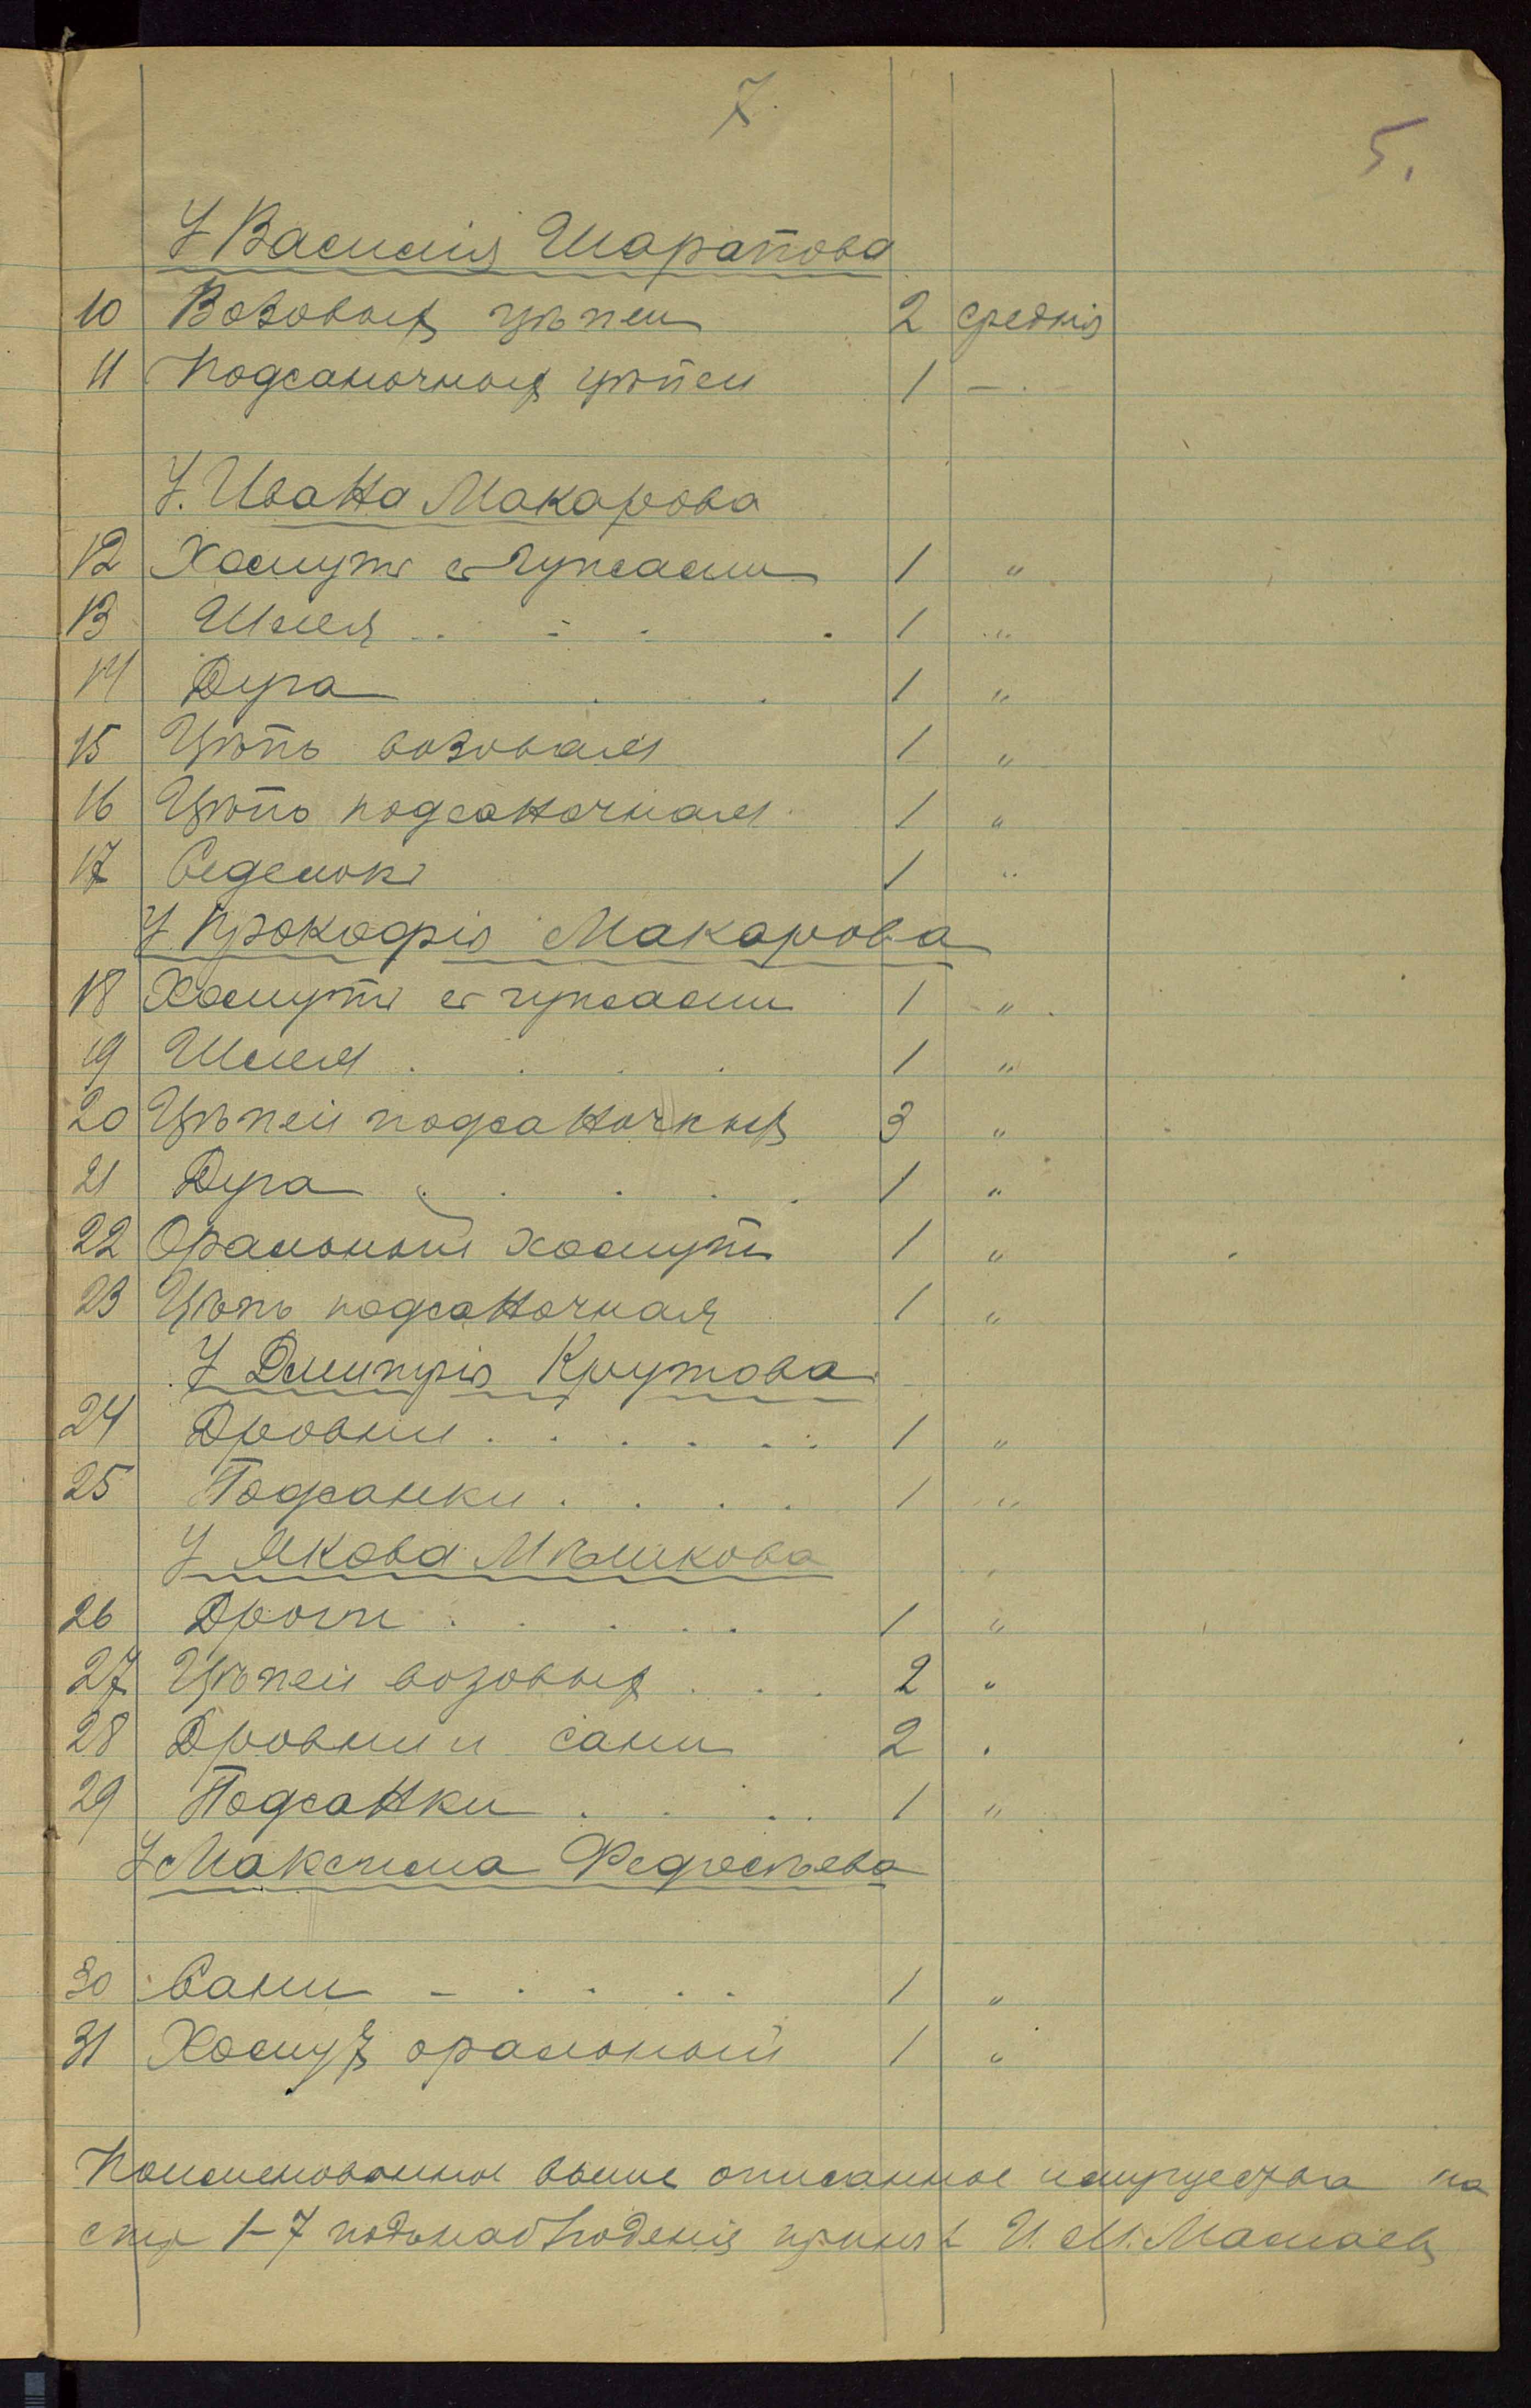 7.
5.
У Василія Шарапова
10 Возовыхъ цѣпей 2 среднія
11 Подсаночныхъ цѣпей 1 —
У. Ивана Макарова
12 Хомутъ съ гужами 1 "
13 Шлея 1 "
14 Дуга 1 "
15 Цѣпь возовая 1 "
16 Цѣпь подсаночная 1 "
17 Седелокъ 1 "
У Прокофія Макарова
18 Хомутъ съ гужами 1 "
19 Шлея 1 "
20 Цѣпей подсаночныхъ 3 "
21 Дуга 1 "
22 Оральный хомутъ 1 "
23 Цѣпь подсаночная 1 "
У Дмитрія Крутова
24 Дровни 1 "
25 Подсанки 1 "
У Якова Мѣшкова
26 Дроги 1 "
27 Цѣпей возовыхъ 2 "
28 Дровни и сани 2 "
29 Подсанки 1 "
У Максима Федосѣева
30 Сани 1 "
31 Хомутъ оральный 1 "
Поименованное выше описанное имущества на
стр 1-7 подъ наблюденіе принялъ И. М. Мамаевъ